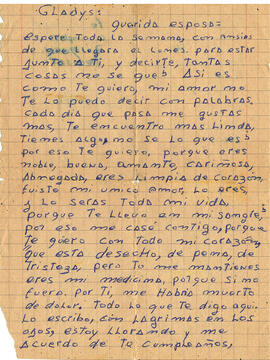 GLadys:
Querida esposa:
espere Toda la semana, con ansias
de que llegara el Lunes. para estar
Junto A Ti, y decirte, Tantas
cosas me se que? Asi es
como Te quiero, mi amor no
Te Lo puedo decir con palabras,
cada dia que pasa me gustas
mas, Te encuentro mas Linda,
Tienes algo, no se Lo que es
por eso Te quiero, porque eres
noble, buena, amante, cariñosa,
Abnegada, eres Limpia de corazon,
fuiste mi unico amor, Lo eres,
y Lo seras Toda mi vida,
porque Te LLevo en mi sangre,
por eso me case contigo, porque
Te quiero con Todo mi corazon,
que esta desecho, de pena, de
Tristeza, pero Tu me mantienes
eres mi medicina, porque si no
fuera. por Ti, me Habria muerto
de dolor, Todo Lo que Te digo aqui
Lo escribo, con LAgrimas en Los
ojos, estoy LLorando y me
Acuerdo de Tu cumpleaños,